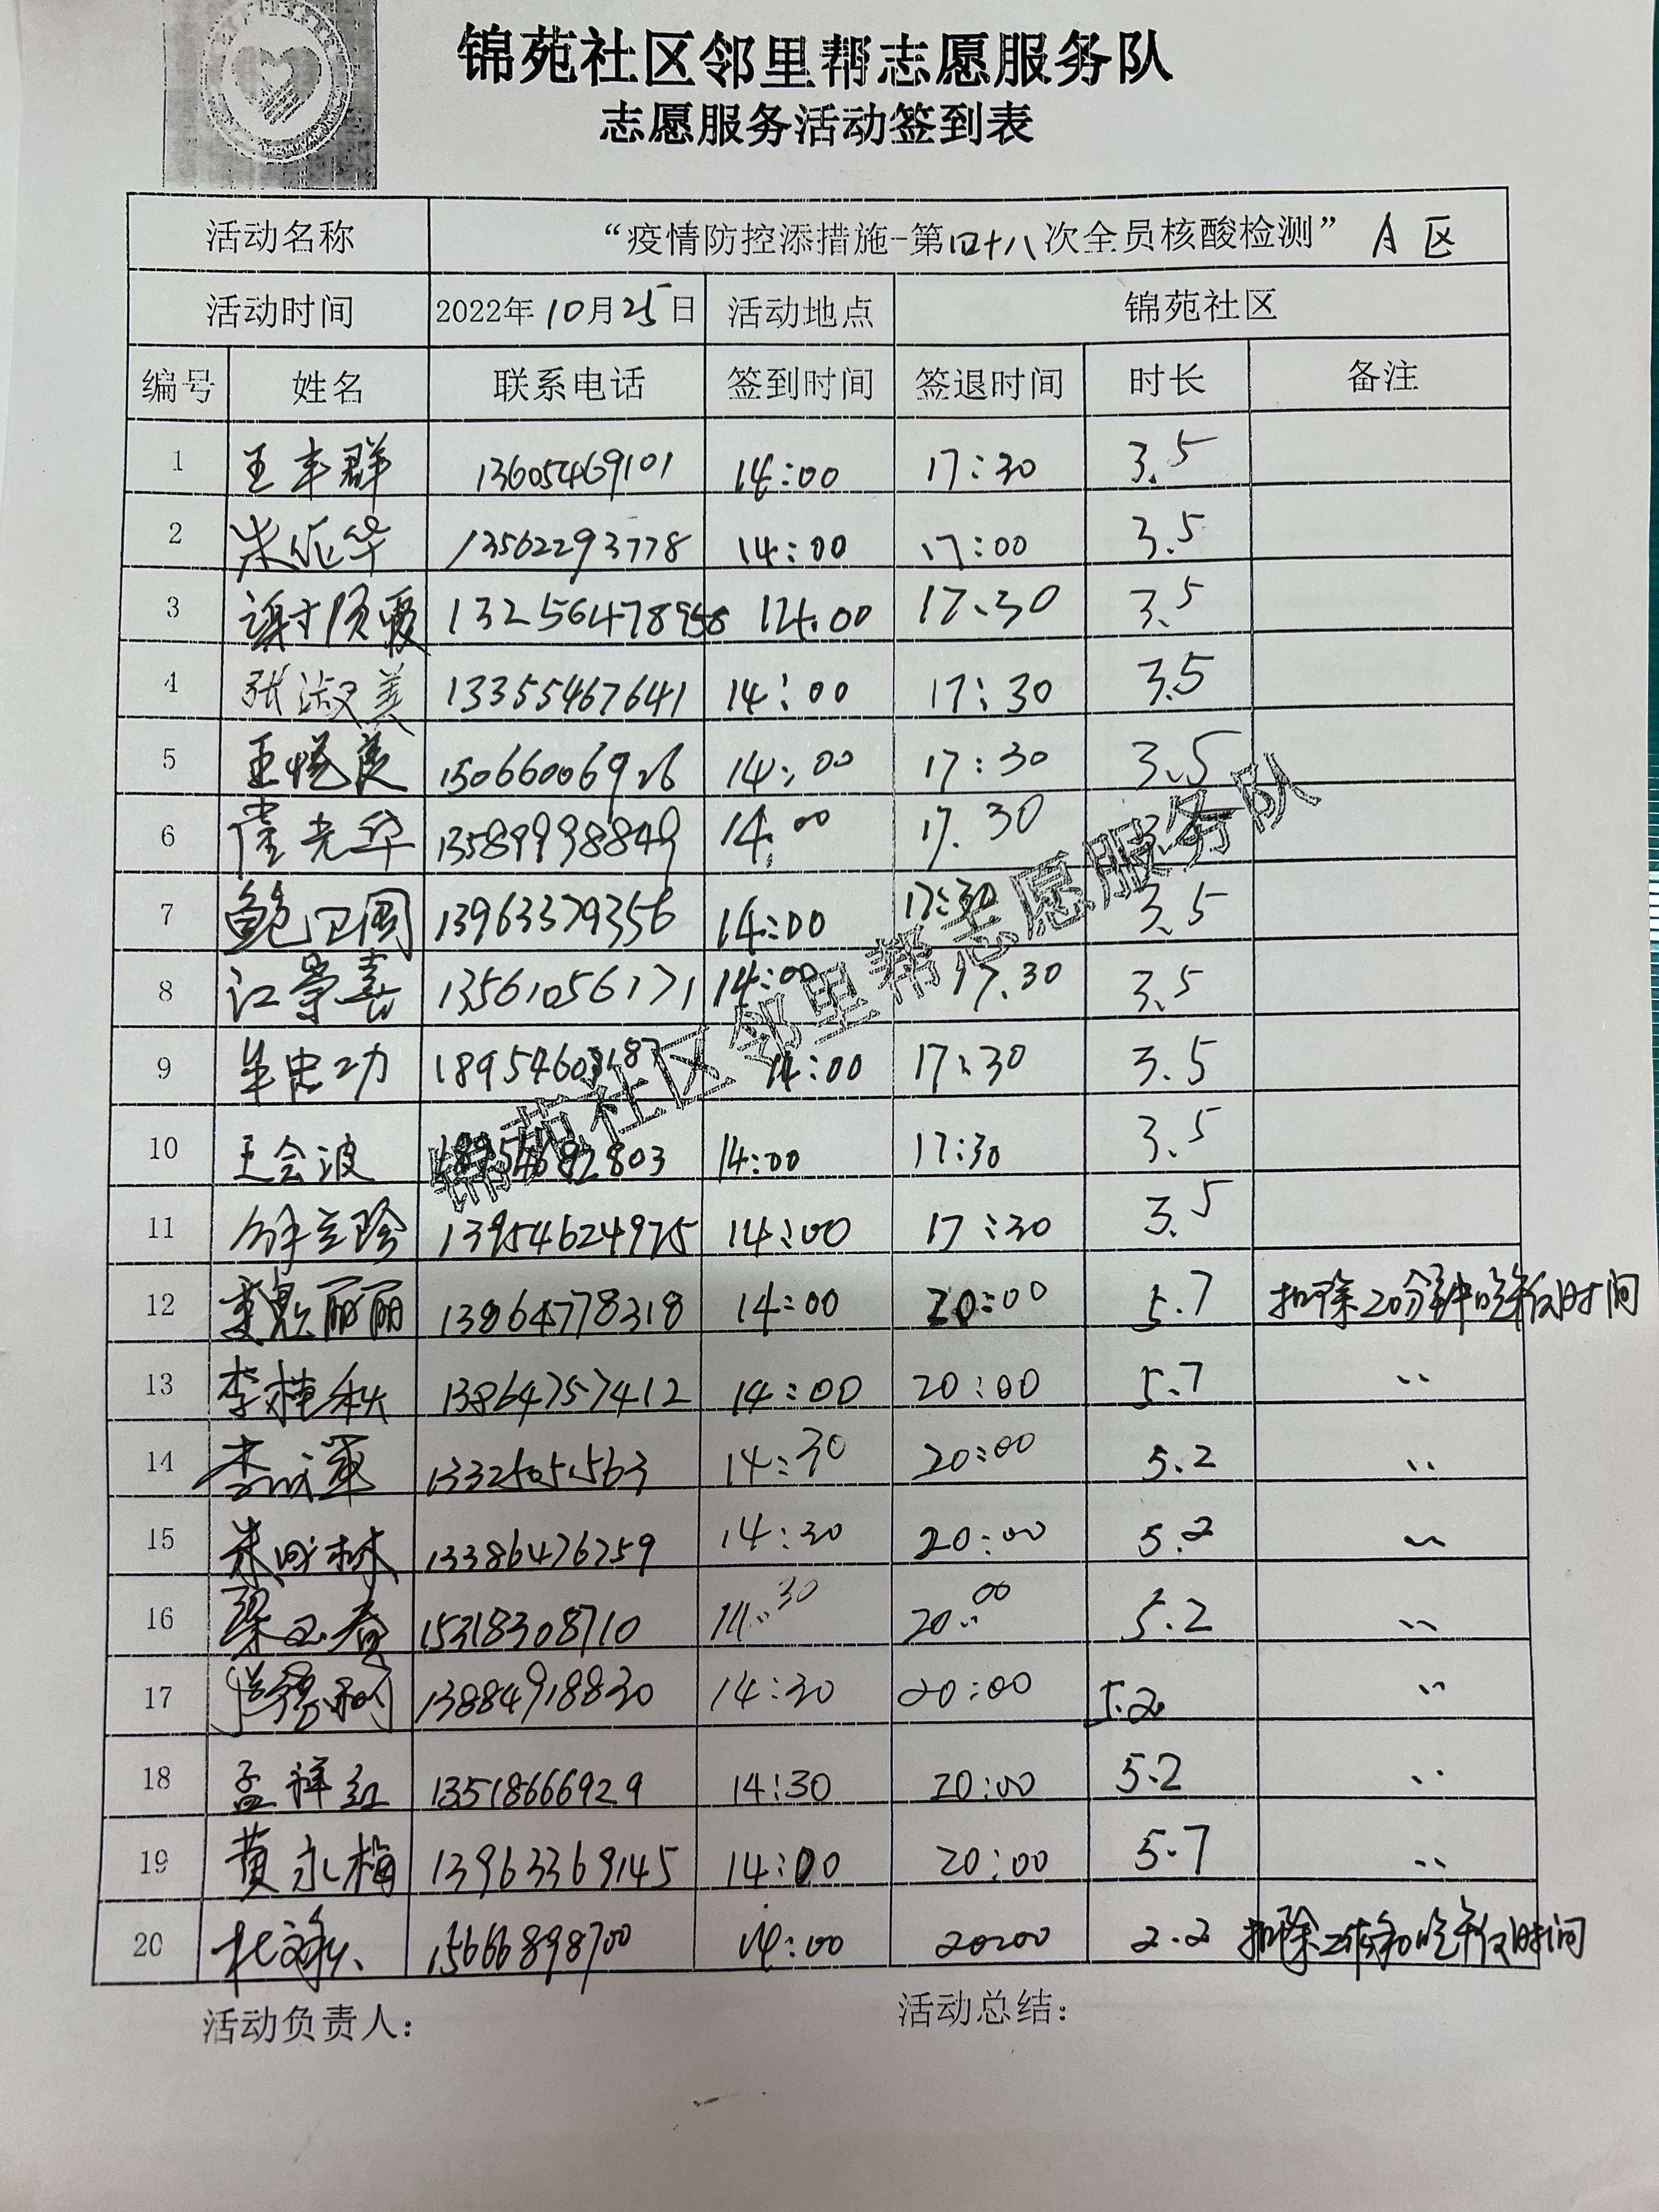 锦苑社区邻里帮志愿服务队
志愿服务活动签到表
活动名称 “疫情防控添措施-第四十八次全员核酸检测” A区
活动时间 2022年10月25日 活动地点 锦苑社区
编号 姓名 联系电话 签到时间 签退时间 时长 备注
1 王丰群 13605469101 14:00 17:30 3.5
2 朱延华 13562293778 14:00 17:00 3.5
3 132564478958 14:00 17:30 3.5
4 张淑美 13355467641 14:00 17:30 3.5
5 王悦良 15066006926 14:00 17:30 3.5
6 崔光华 13589998849 14:00 17.30
7 鲍卫国 13963379356 14:00 17:30 3.5
8 江景喜 13561056171 14:00 17.30 3.5
9 牟忠功 14:00 17:30 3.5
10 王会波 18954682803 14:00 17:30 3.5
11 13954624975 14:00 17:30 3.5
12 丽丽 13864778318 14:00 20:00 5.7 扣除20分钟吃午饭时间
13 李桂秋 13864757412 14:00 20:00 5.7 〃
14 李 军 13325051563 14:30 20:00 5.2 〃
15 朱 林 13386476759 14:30 20:00 5.2 〃
16 梁玉春 15318308710 14:30 20:00 5.2 〃
17 13884918830 14:30 20:00 5.2 〃
18 孟祥红 13518666929 14:30 20:00 5.2 〃
19 黄永梅 13963369145 14:00 20:00 5.7 〃
20 杜 15666898700 14:00 20:00 2.2 扣除 和吃午饭时间
锦苑社区邻里帮志愿服务队
活动负责人： 活动总结：